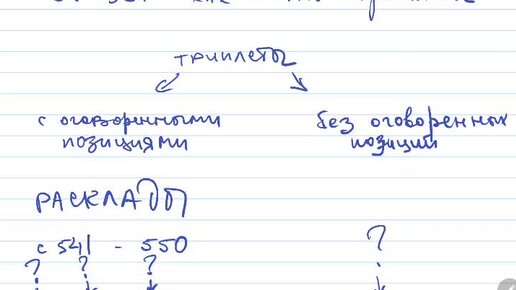 триплеты
с оговоренными без оговоренных
позициями позиций
РАСКЛАДЫ
с 541 - 550 ?
? ? ?